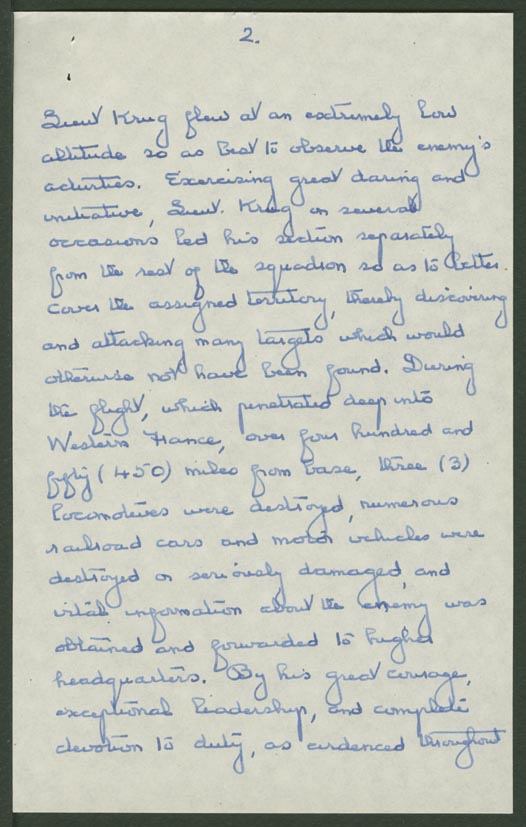 2.
Lieut Krug flew at an extremely low
altitude so as best to observe the enemy's
activities. Exercising great daring and
initiative, Lieut. Krug on several
occasions led his section separately
from the rest of the squadron so as to better
cover the assigned territory, thereby discovering
and attacking many targets which would
otherwise not have been found. During
the flight, which penetrated deep into
Western France, over four hundred and
fifty (450) miles from base, three (3)
locomotives were destroyed, numerous
railroad cars and motor vehicles were
destroyed or seriously damaged, and
vital information about the enemy was
obtained and forwarded to higher
headquarters. By his great courage,
exceptional leadership, and complete
devotion to duty, as evidenced throughout